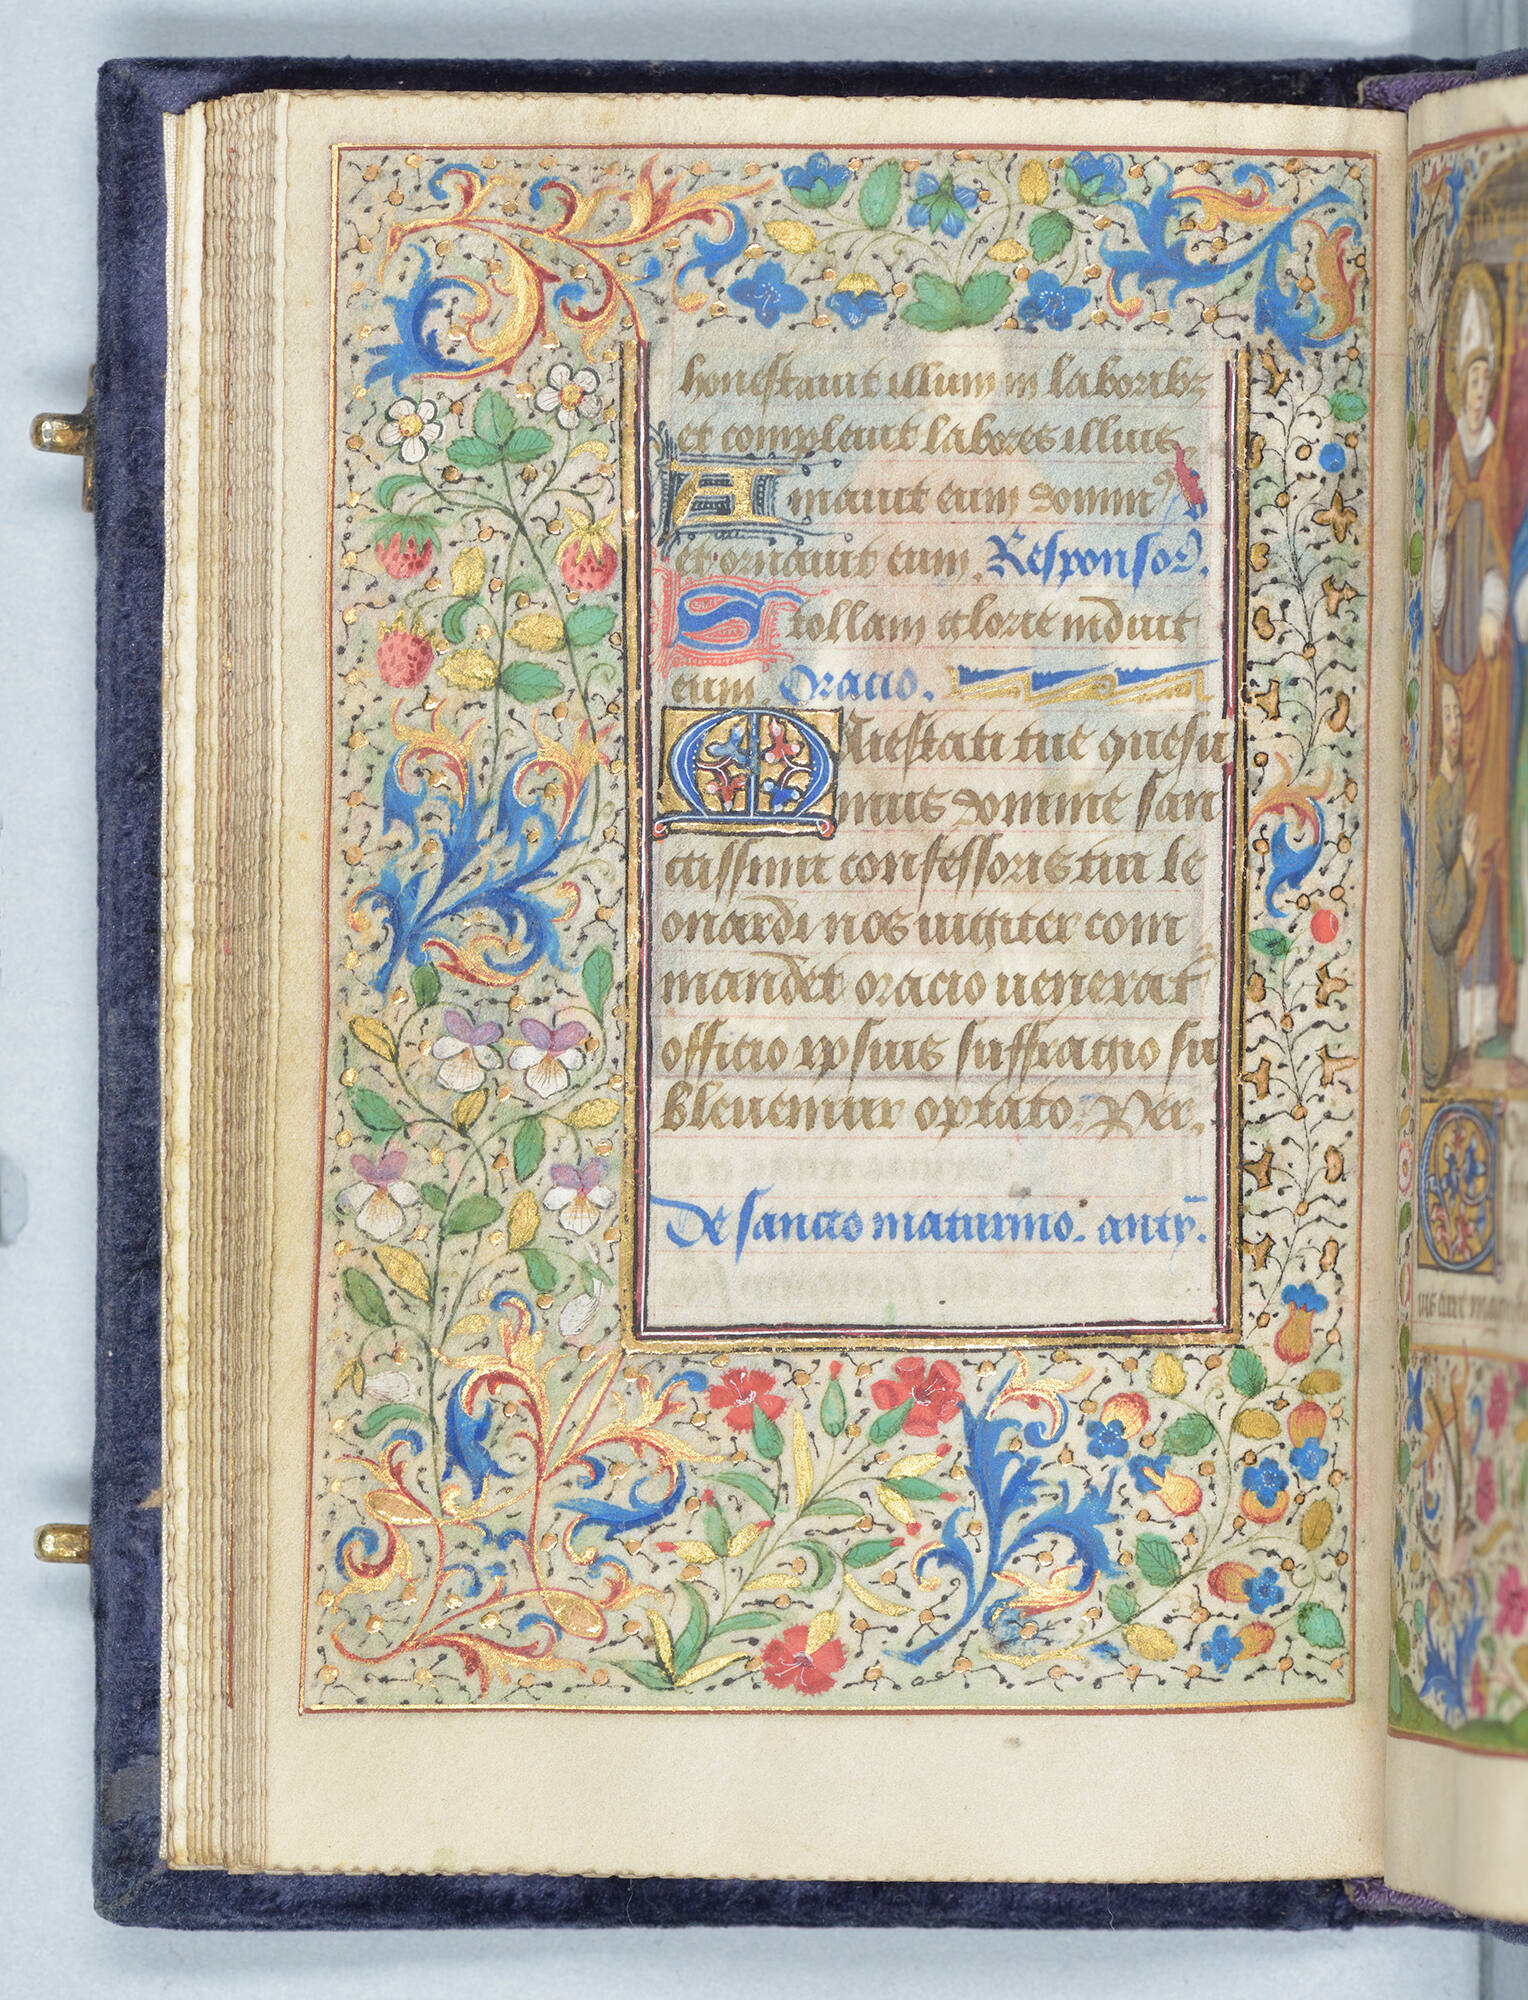 honestauit illum in laboribz
et compleuit labores illius
Amauit eum domin9
et ornauit eum. Responsor.
Stollam glorie induit
eum. Oracio.
Maiestati tue quesu
mus domine san
ctissimi confessoris tui le
onardi nos iugiter com
mandet oracio uenerat
officio ypsius suffragio su
bleuemur optato. Per.
De sancto maturino. anty.